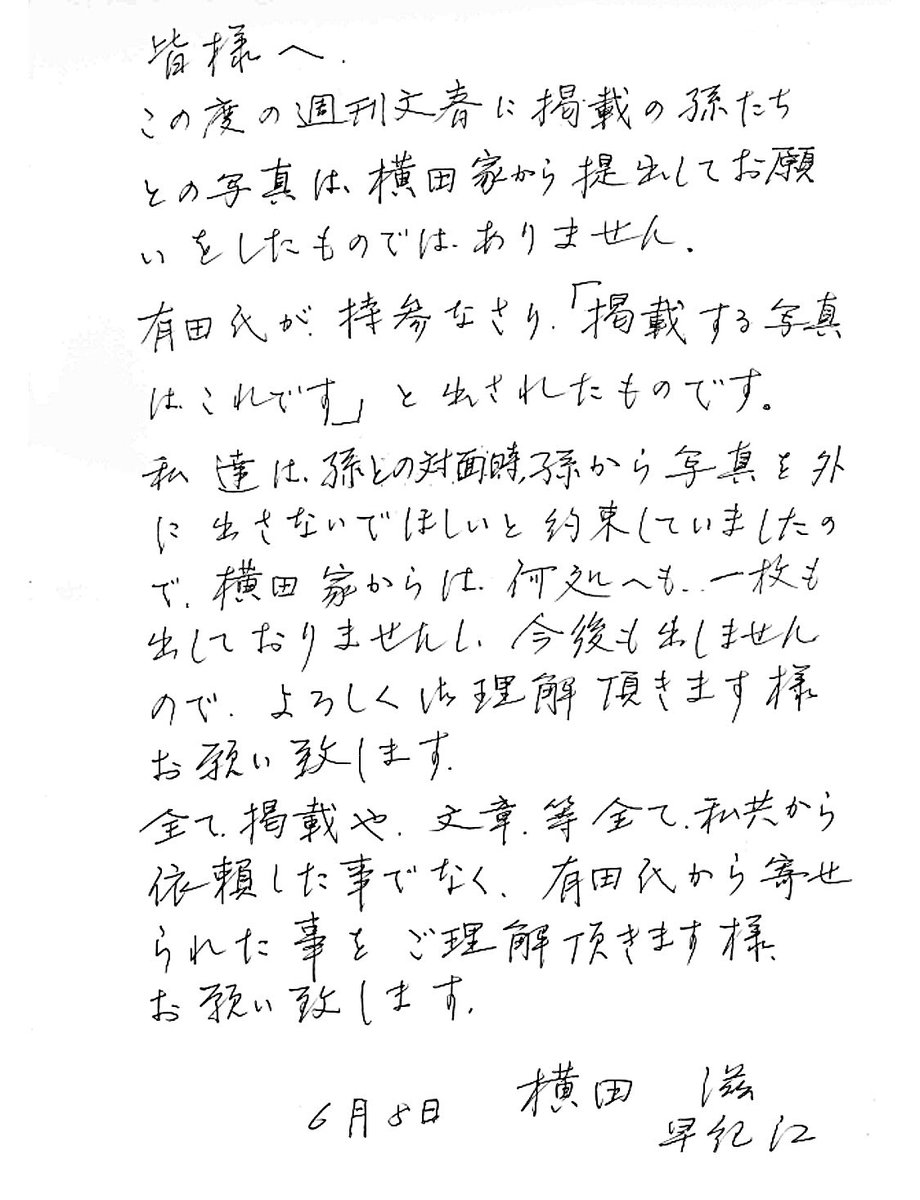 皆様へ.
この度の週刊文春に掲載の孫たち
との写真は、横田家から提出してお願
いをしたものでは、ありません.
有田氏が、持参なさり、「掲載する写真
は、これです」と出されたものです。
私達は、孫との対面時、孫から写真を外
に出さないでほしいと約束していましたの
で、横田家からは、何処へも、一枚も
出しておりませんし、今後も出しません
ので、よろしく御理解頂きます様
お願い致します.
全て、掲載や、文章、等全て、私共から
依頼した事でなく、有田氏から寄せ
られた事をご理解頂きます様、
お願い致します.
6月8日 横田 滋
早紀江